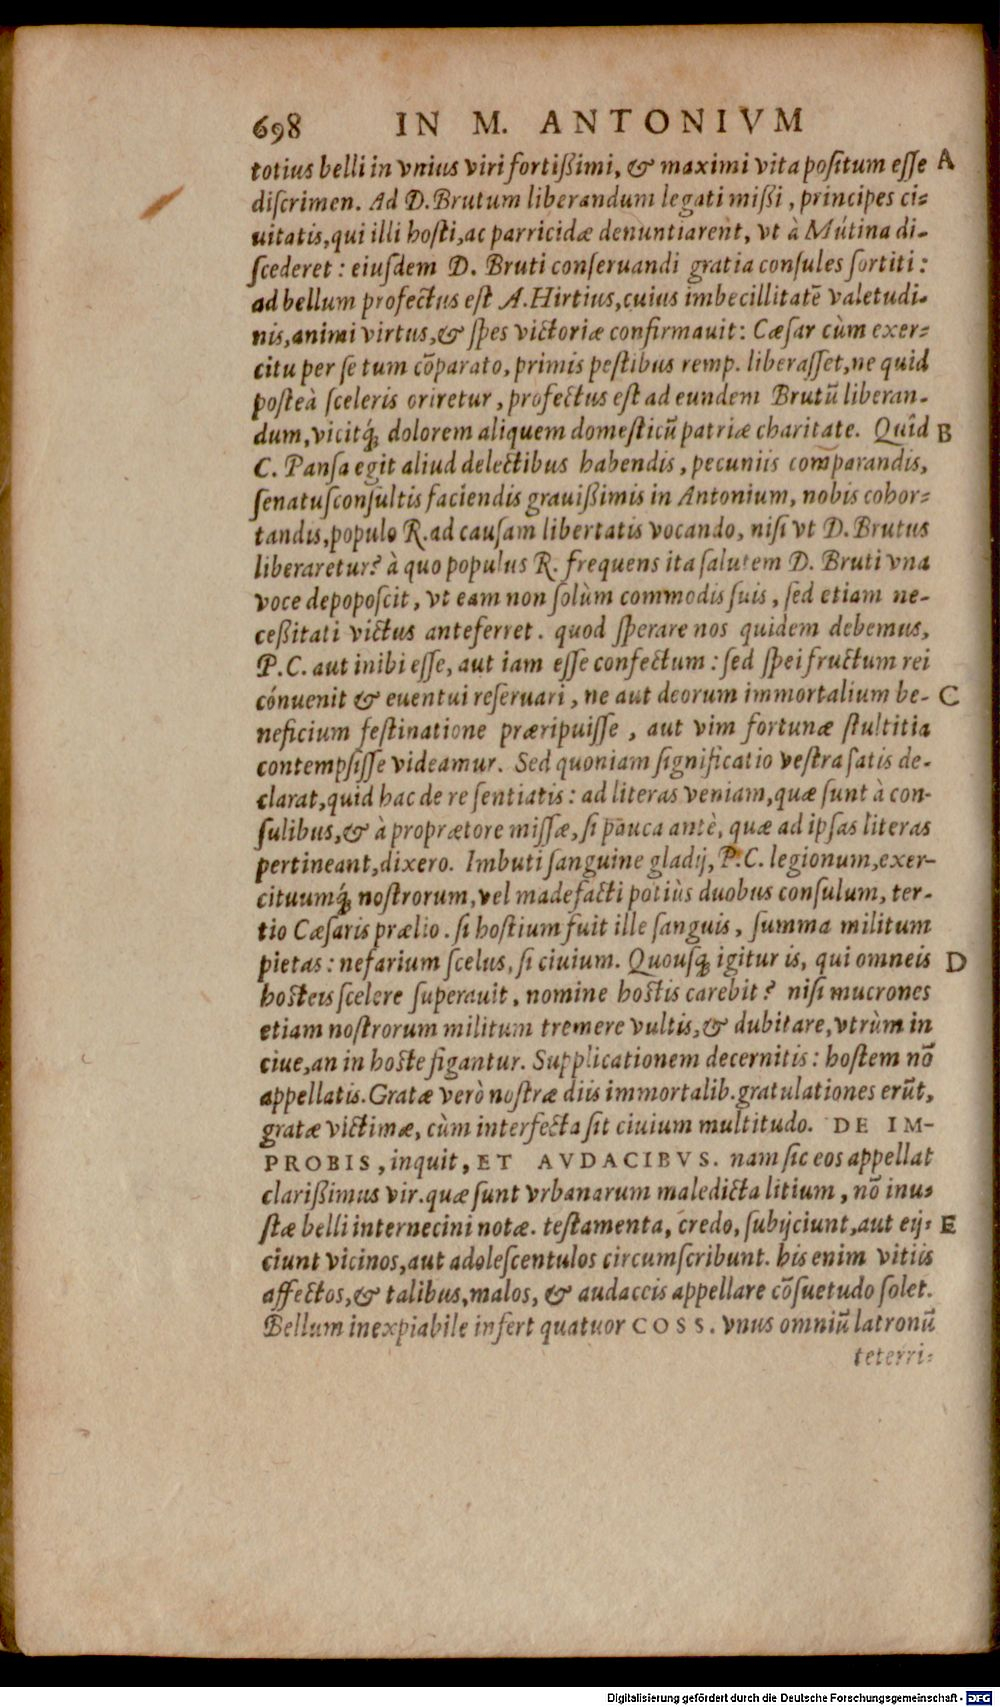 698 IN M. ANTONIVM
totius belli in vnius viri fortißimi, & maximi vita positum esse A
discrimen. Ad D. Brutum liberandum legati mißi, principes ci=
uitatis, qui illi hosti, ac parricidæ denuntiarent, vt à Mutina di-
scederet : eiusdem D. Bruti conseruandi gratia consules sortiti :
ad bellum profectus est A. Hirtius, cuius imbecillitatē valetudi-
nis, animi virtus, & spes victoriæ confirmauit : Cæsar cùm exer=
citu per se tum cōparato, primis pestibus remp. liberasset, ne quid
posteà sceleris oriretur, profectus est ad eundem Brutū liberan-
dum, vicitq́; dolorem aliquem domesticū patriæ charitate. Quid B
C. Pansa egit aliud delectibus habendis, pecuniis comparandis,
senatusconsultis faciendis grauißimis in Antonium, nobis cohor=
tandis, populo R. ad causam libertatis vocando, nisi vt D. Brutus
liberaretur? à quo populus R. frequens ita salutem D. Bruti vna
voce depoposcit, vt eam non solùm commodis suis, sed etiam ne-
ceßitati victus anteferret. quod sperare nos quidem debemus,
P. C. aut inibi esse, aut iam esse confectum : sed spei fructum rei
conuenit & euentui reseruari, ne aut deorum immortalium be- C
neficium festinatione præripuisse, aut vim fortunæ stultitia
contempsisse videamur. Sed quoniam significatio vestra satis de-
clarat, quid hac de re sentiatis : ad literas veniam, quæ sunt à con-
sulibus, & à proprætore missæ, si pauca antè, quæ ad ipsas literas
pertineant, dixero. Imbuti sanguine gladij, P. C. legionum, exer-
cituumq́; nostrorum, vel madefacti potiùs duobus consulum, ter-
tio Cæsaris prælio. si hostium fuit ille sanguis, summa militum
pietas : nefarium scelus, si ciuium. Quousq; igitur is, qui omneis D
hosteis scelere superauit, nomine hostis carebit? nisi mucrones
etiam nostrorum militum tremere vultis, & dubitare, vtrùm in
ciue, an in hoste figantur. Supplicationem decernitis : hostem nō
appellatis. Gratæ verò nostræ diis immortalib. gratulationes erūt,
gratæ victimæ, cùm interfecta sit ciuium multitudo. DE IM-
PROBIS, inquit, ET AVDACIBVS. nam sic eos appellat
clarißimus vir. quæ sunt vrbanarum maledicta litium, nō inu-
stæ belli internecini notæ. testamenta, credo, subijciunt, aut eij= E
ciunt vicinos, aut adolescentulos circumscribunt. his enim vitiis
affectos, & talibus, malos, & audaceis appellare cōsuetudo solet.
Bellum inexpiabile infert quatuor COSS. vnus omniū latronū
teterri=
Digitalisierung gefördert durch die Deutsche Forschungsgemeinschaft - DFG